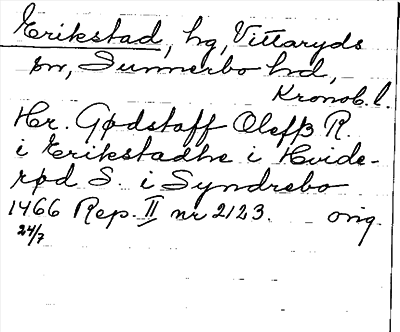 Erikstad, hg, Vittaryds
sn, Sunnerbo hd,
Kronob. l.
Hr. Gødstaff Oleffß R.
i Erikstadhe i Hvide-
rød S. i Syndrebo
1466 Rep. II nr 2123. orig.
24/7